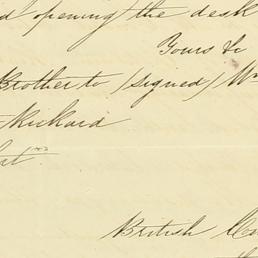 d opening the desk
Yours &c
Brother to (signed) Wm
Rickard
British Con